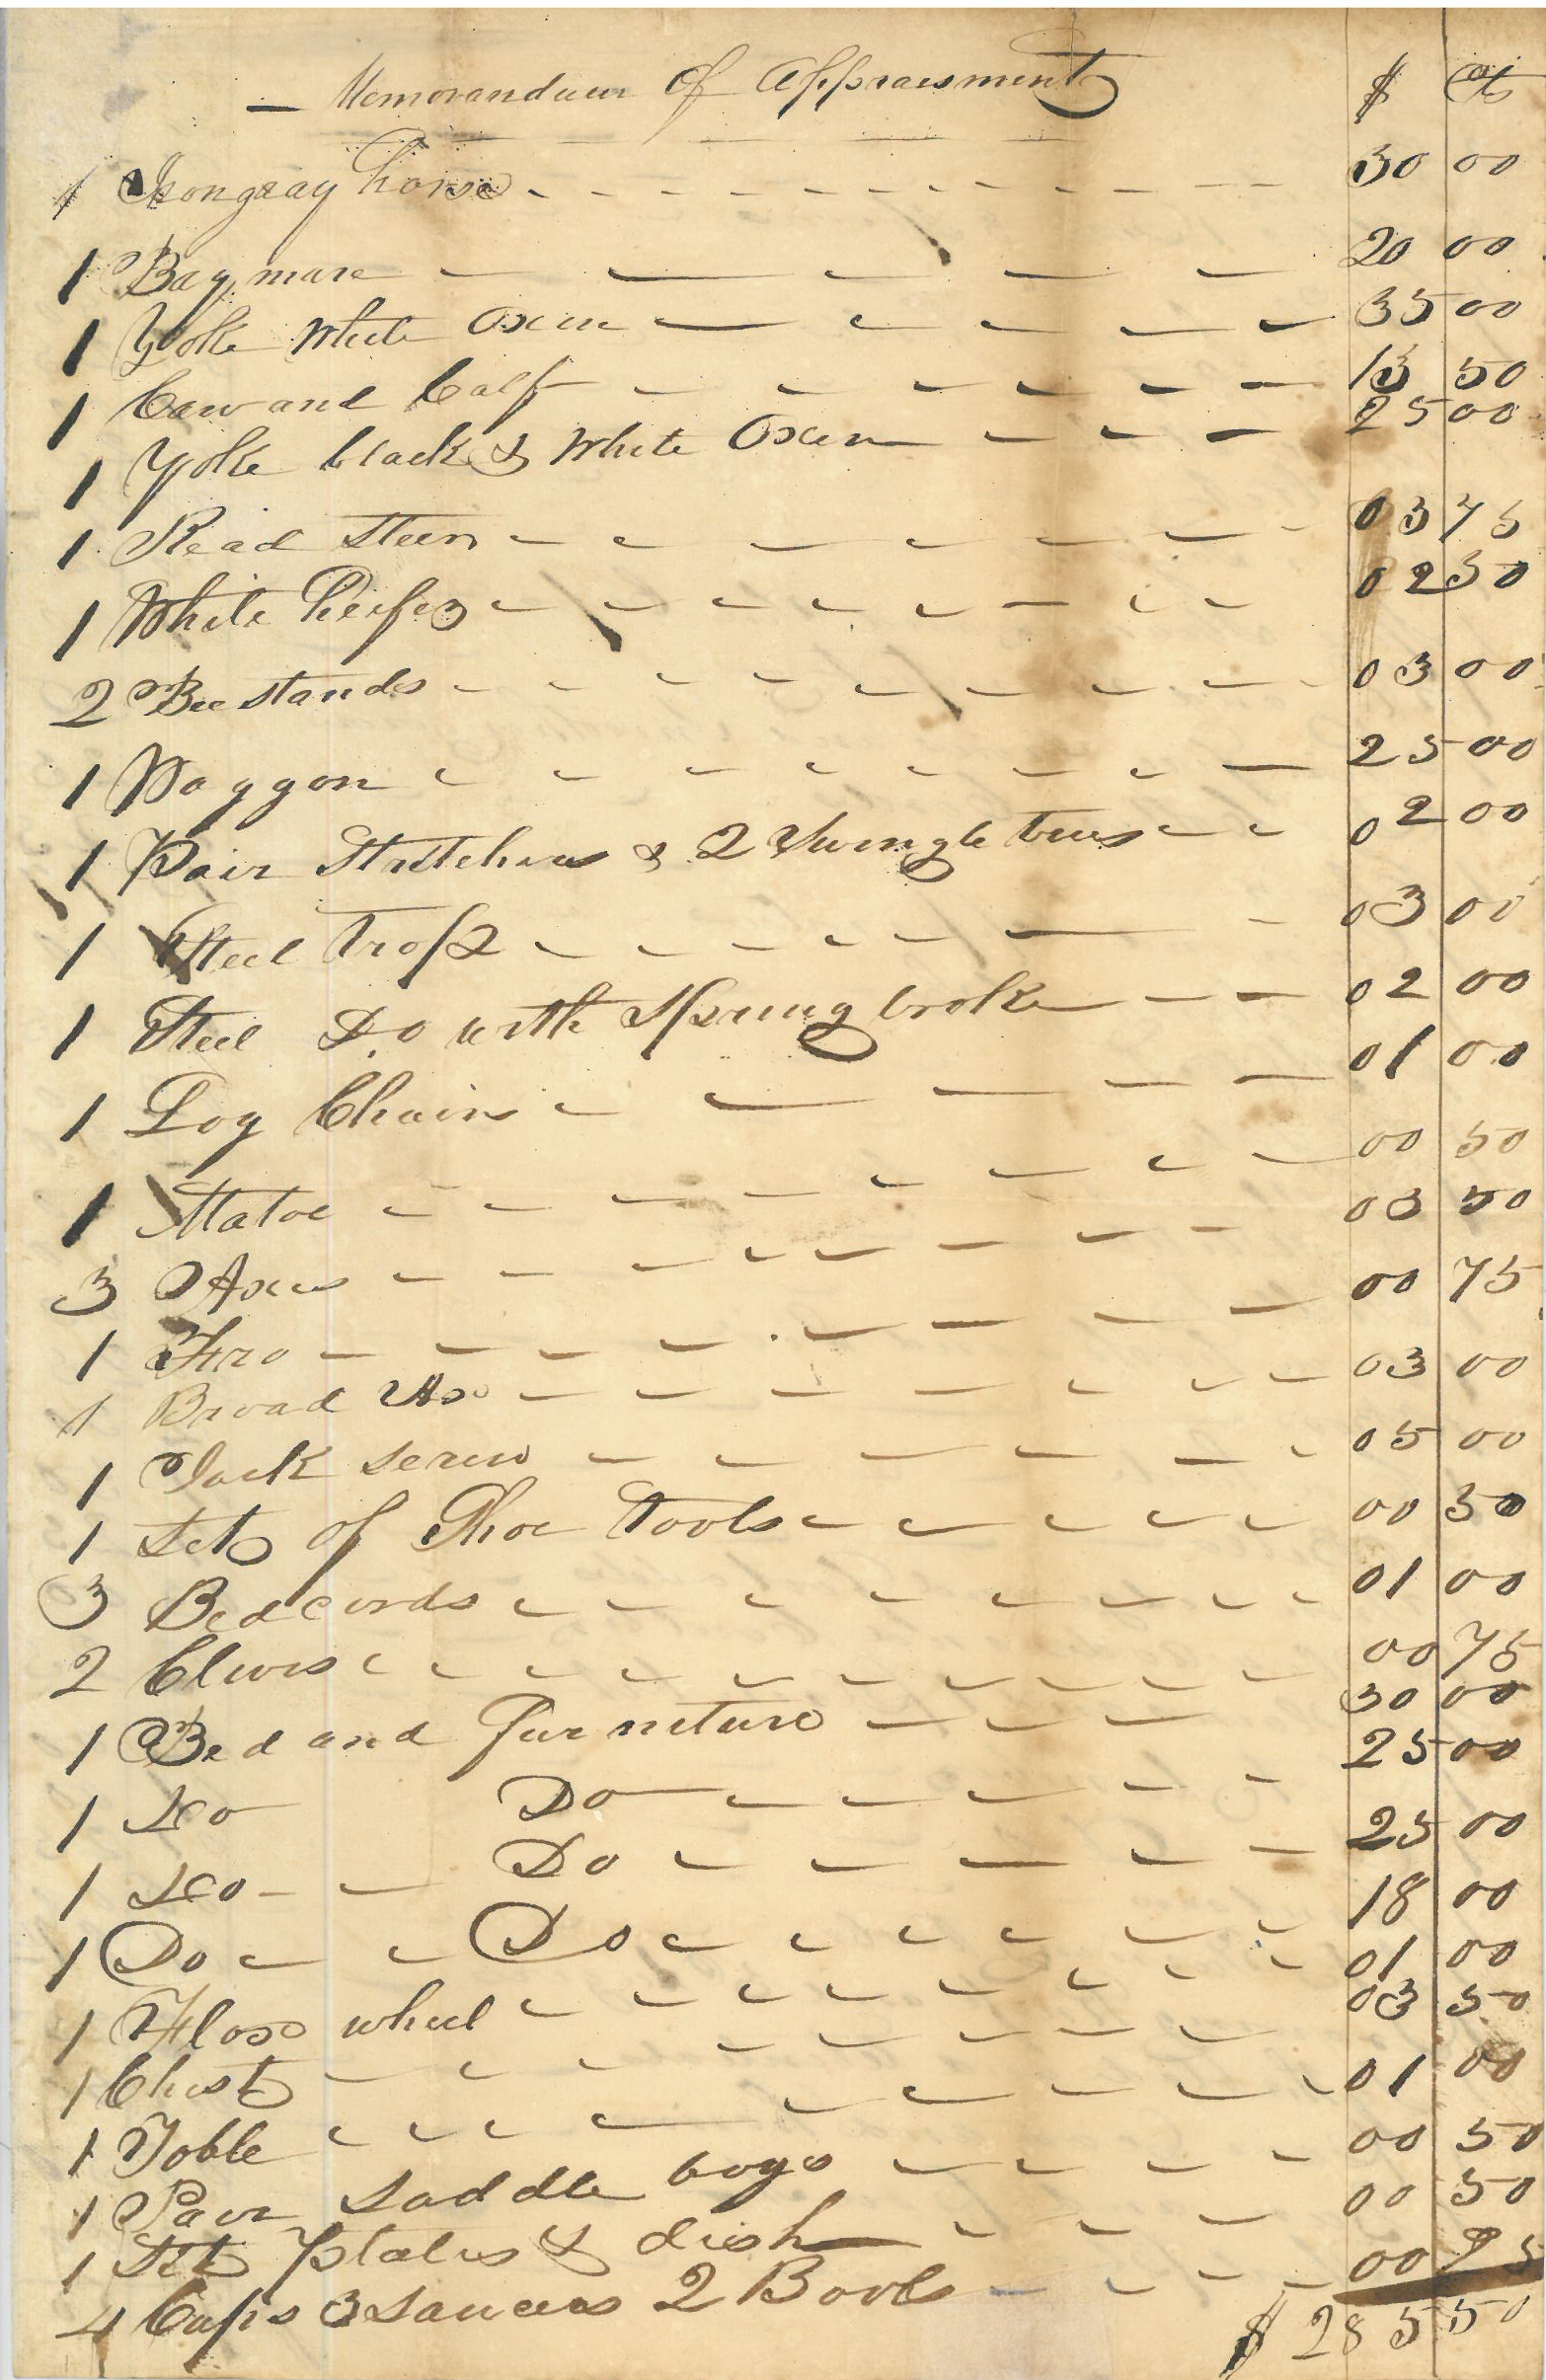 Memorandum of Appraisment $ cts
1 Irongray horse 30 00
1 Bay mare 20 00
1 Yoke white Oxen 35 00
1 Cow and Calf 13 50
1 Yoke black & white Oxen 25 00
1 Read Steer 03 75
1 White heifer 02 50
2 Bee stands 03 00
1 Waggon 25 00
1 Pair Stretchers & 2 Swingle trees 02 00
1 Steel Trap 03 00
1 Steel Do with Spring broke 02 00
1 Log Chain 01 00
1 Matoc 00 50
3 Axes 03 50
1 Fro 00 75
1 Broad Ax 03 00
1 Jack screw 05 00
1 Set of Shoe Tools 00 50
3 Bedcords 01 00
2 Clivis 00 75
1 Bed and furniture 30 00
1 Do Do 25 00
1 Do Do 25 00
1 Do Do 18 00
1 Flax wheel 01 00
1 Chest 03 50
1 Table 01 00
1 Pair Saddle bags 00 50
1 Set plates & dish 00 50
4 Cups 3 Saucers 2 Bools 00 75
$ 285 50